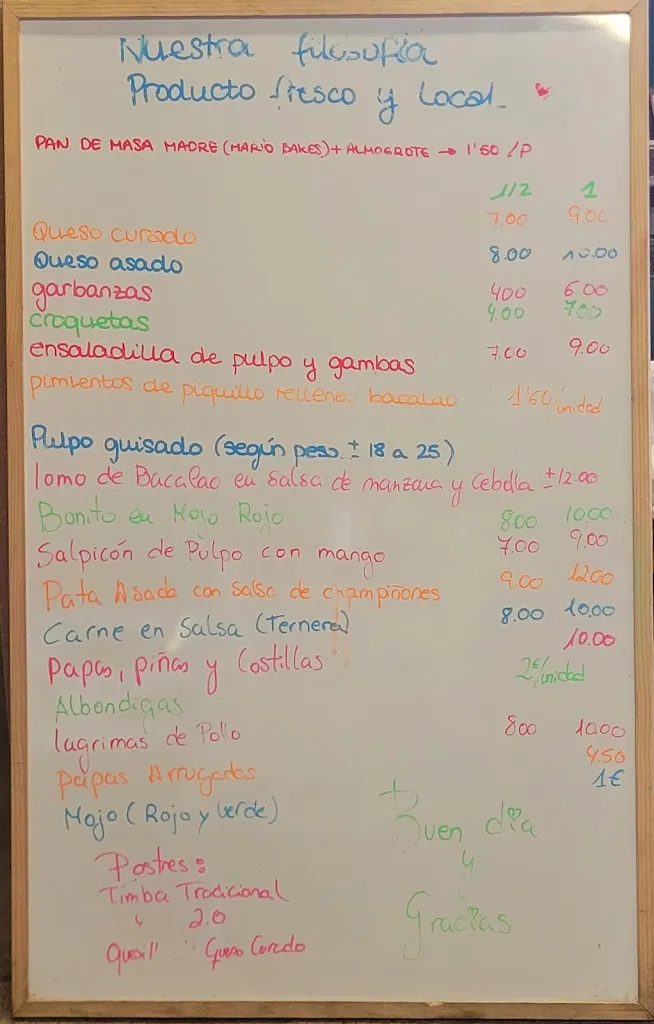 Nuestra filosofía
Producto fresco y Local.
PAN DE MASA MADRE (MARIO BAKES) + ALMOGROTE → 1'50 /P
1/2 1
Queso curado 7.00 9.00
Queso asado 8.00 10.00
garbanzas 400 6.00
croquetas 4.00 700
ensaladilla de pulpo y gambas 7.00 9.00
pimientos de piquillo rellenos bacalao 1'60/unidad
Pulpo guisado (según peso ± 18 a 25)
lomo de Bacalao en salsa de manzana y Cebolla ±12.00
Bonito en Mojo Rojo 800 1000
Salpicón de Pulpo con mango 7.00 9.00
Pata Asada con salsa de champiñones 9.00 1200
Carne en Salsa (Ternera) 8.00 10.00
Papas, piñas y Costillas 10.00
Albondigas 2€/unidad
lagrimas de Pollo 800 1000
papas Arrugadas 4.50
Mojo (Rojo y verde) 1€
Postres:
Timba Tradicional
" 2.0
Queso Curado
Buen día
y
Gracias